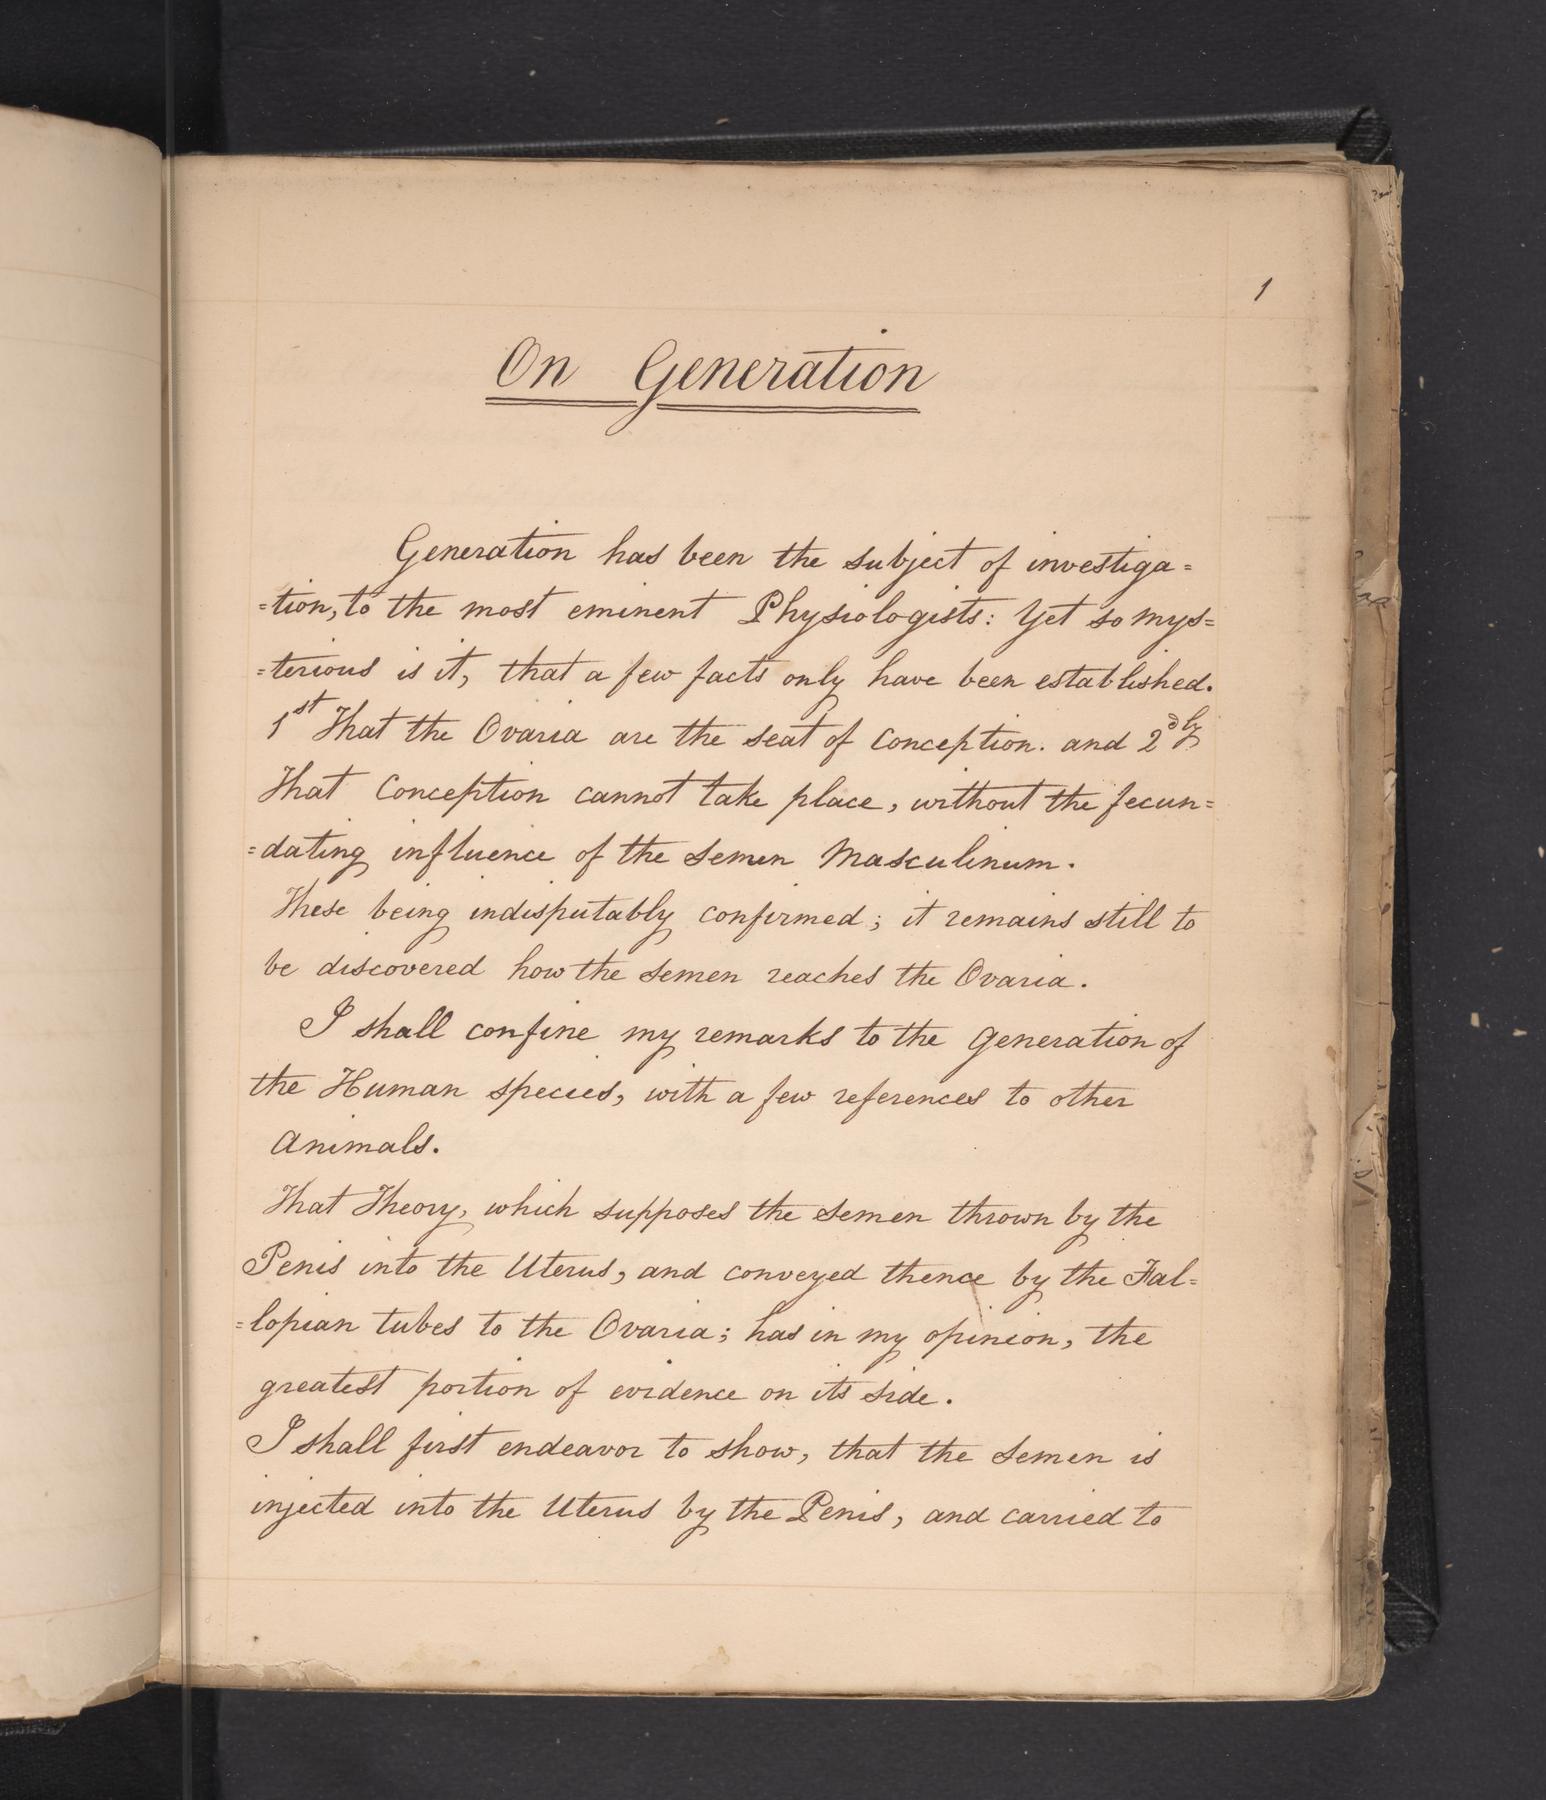 1
On Generation
Generation has been the subject of investiga=
=tion, to the most eminent Physiologists: Yet so mys=
=terious is it, that a few facts only have been established.
1st That the Ovaria are the seat of Conception. and 2dly
That Conception cannot take place, without the fecun=
=dating influence of the Semen Masculinum.
These being indisputably confirmed; it remains still to
be discovered how the Semen reaches the Ovaria.
I shall confine my remarks to the Generation of
the Human species, with a few references to other
Animals.
That Theory, which supposes the Semen thrown by the
Penis into the Uterus, and conveyed thence by the Fal=
=lopian tubes to the Ovaria; has in my opinion, the
greatest portion of evidence on its side.
I shall first endeavor to show, that the Semen is
injected into the Uterus by the Penis, and carried to